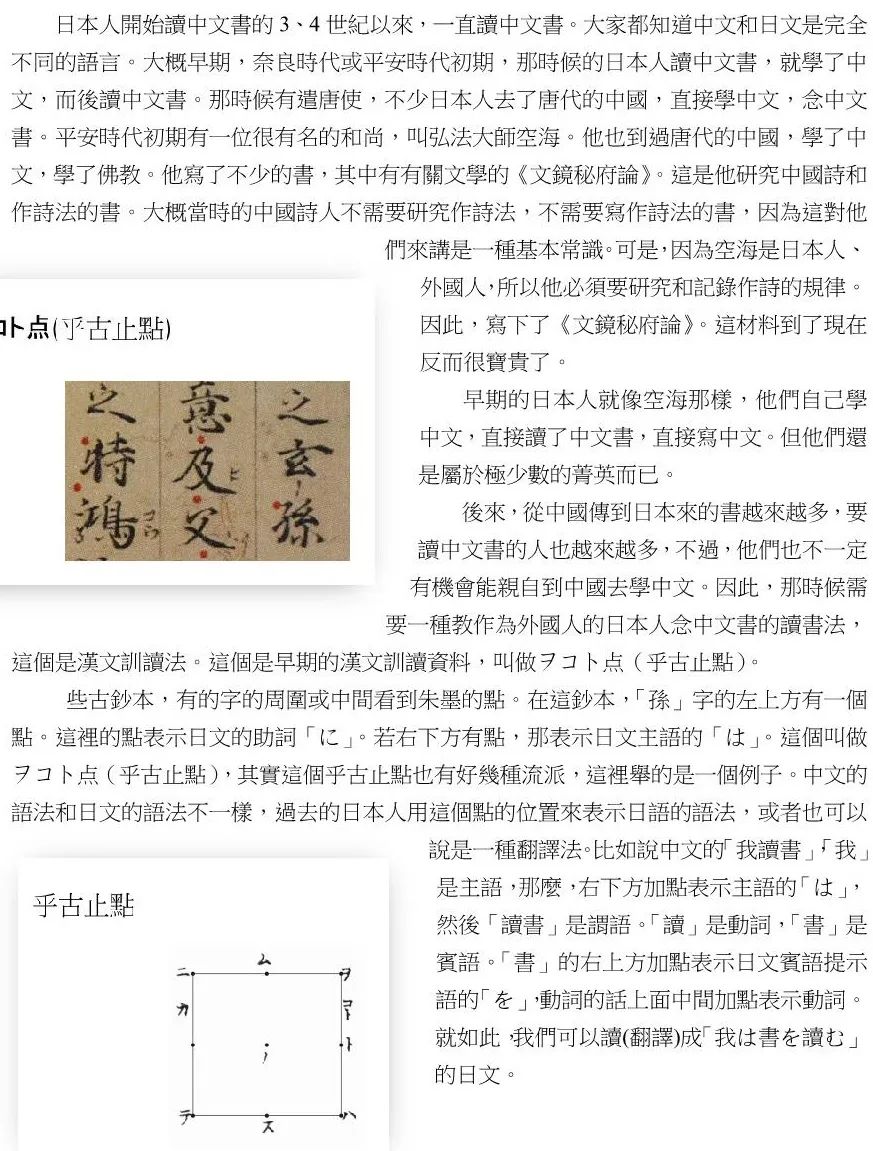 日本人開始讀中文書的 3、4 世紀以來，一直讀中文書。大家都知道中文和日文是完全
不同的語言。大概早期，奈良時代或平安時代初期，那時候的日本人讀中文書，就學了中
文，而後讀中文書。那時候有遣唐使，不少日本人去了唐代的中國，直接學中文，念中文
書。平安時代初期有一位很有名的和尚，叫弘法大師空海。他也到過唐代的中國，學了中
文，學了佛教。他寫了不少的書，其中有有關文學的《文鏡秘府論》。這是他研究中國詩和
作詩法的書。大概當時的中國詩人不需要研究作詩法，不需要寫作詩法的書，因為這對他
們來講是一種基本常識。可是，因為空海是日本人、
外國人，所以他必須要研究和記錄作詩的規律。
因此，寫下了《文鏡秘府論》。這材料到了現在
反而很寶貴了。
コト点(乎古止點)
之玄孫
意及父
之特鴻
早期的日本人就像空海那樣，他們自己學
中文，直接讀了中文書，直接寫中文。但他們還
是屬於極少數的菁英而已。
後來，從中國傳到日本來的書越來越多，要
讀中文書的人也越來越多，不過，他們也不一定
有機會能親自到中國去學中文。因此，那時候需
要一種教作為外國人的日本人念中文書的讀書法，
這個是漢文訓讀法。這個是早期的漢文訓讀資料，叫做ヲコト点（乎古止點）。
些古鈔本，有的字的周圍或中間看到朱墨的點。在這鈔本，「孫」字的左上方有一個
點。這裡的點表示日文的助詞「に」。若右下方有點，那表示日文主語的「は」。這個叫做
ヲコト点（乎古止點），其實這個乎古止點也有好幾種流派，這裡舉的是一個例子。中文的
語法和日文的語法不一樣，過去的日本人用這個點的位置來表示日語的語法，或者也可以
說是一種翻譯法。比如說中文的「我讀書」，「我」
是主語，那麼，右下方加點表示主語的「は」，
然後「讀書」是謂語。「讀」是動詞，「書」是
賓語。「書」的右上方加點表示日文賓語提示
語的「を」，動詞的話上面中間加點表示動詞。
就如此，我們可以讀(翻譯)成「我は書を讀む」
的日文。
乎古止點
ニ ム ヲ
カ コト
ノ ト
テ ス ハ